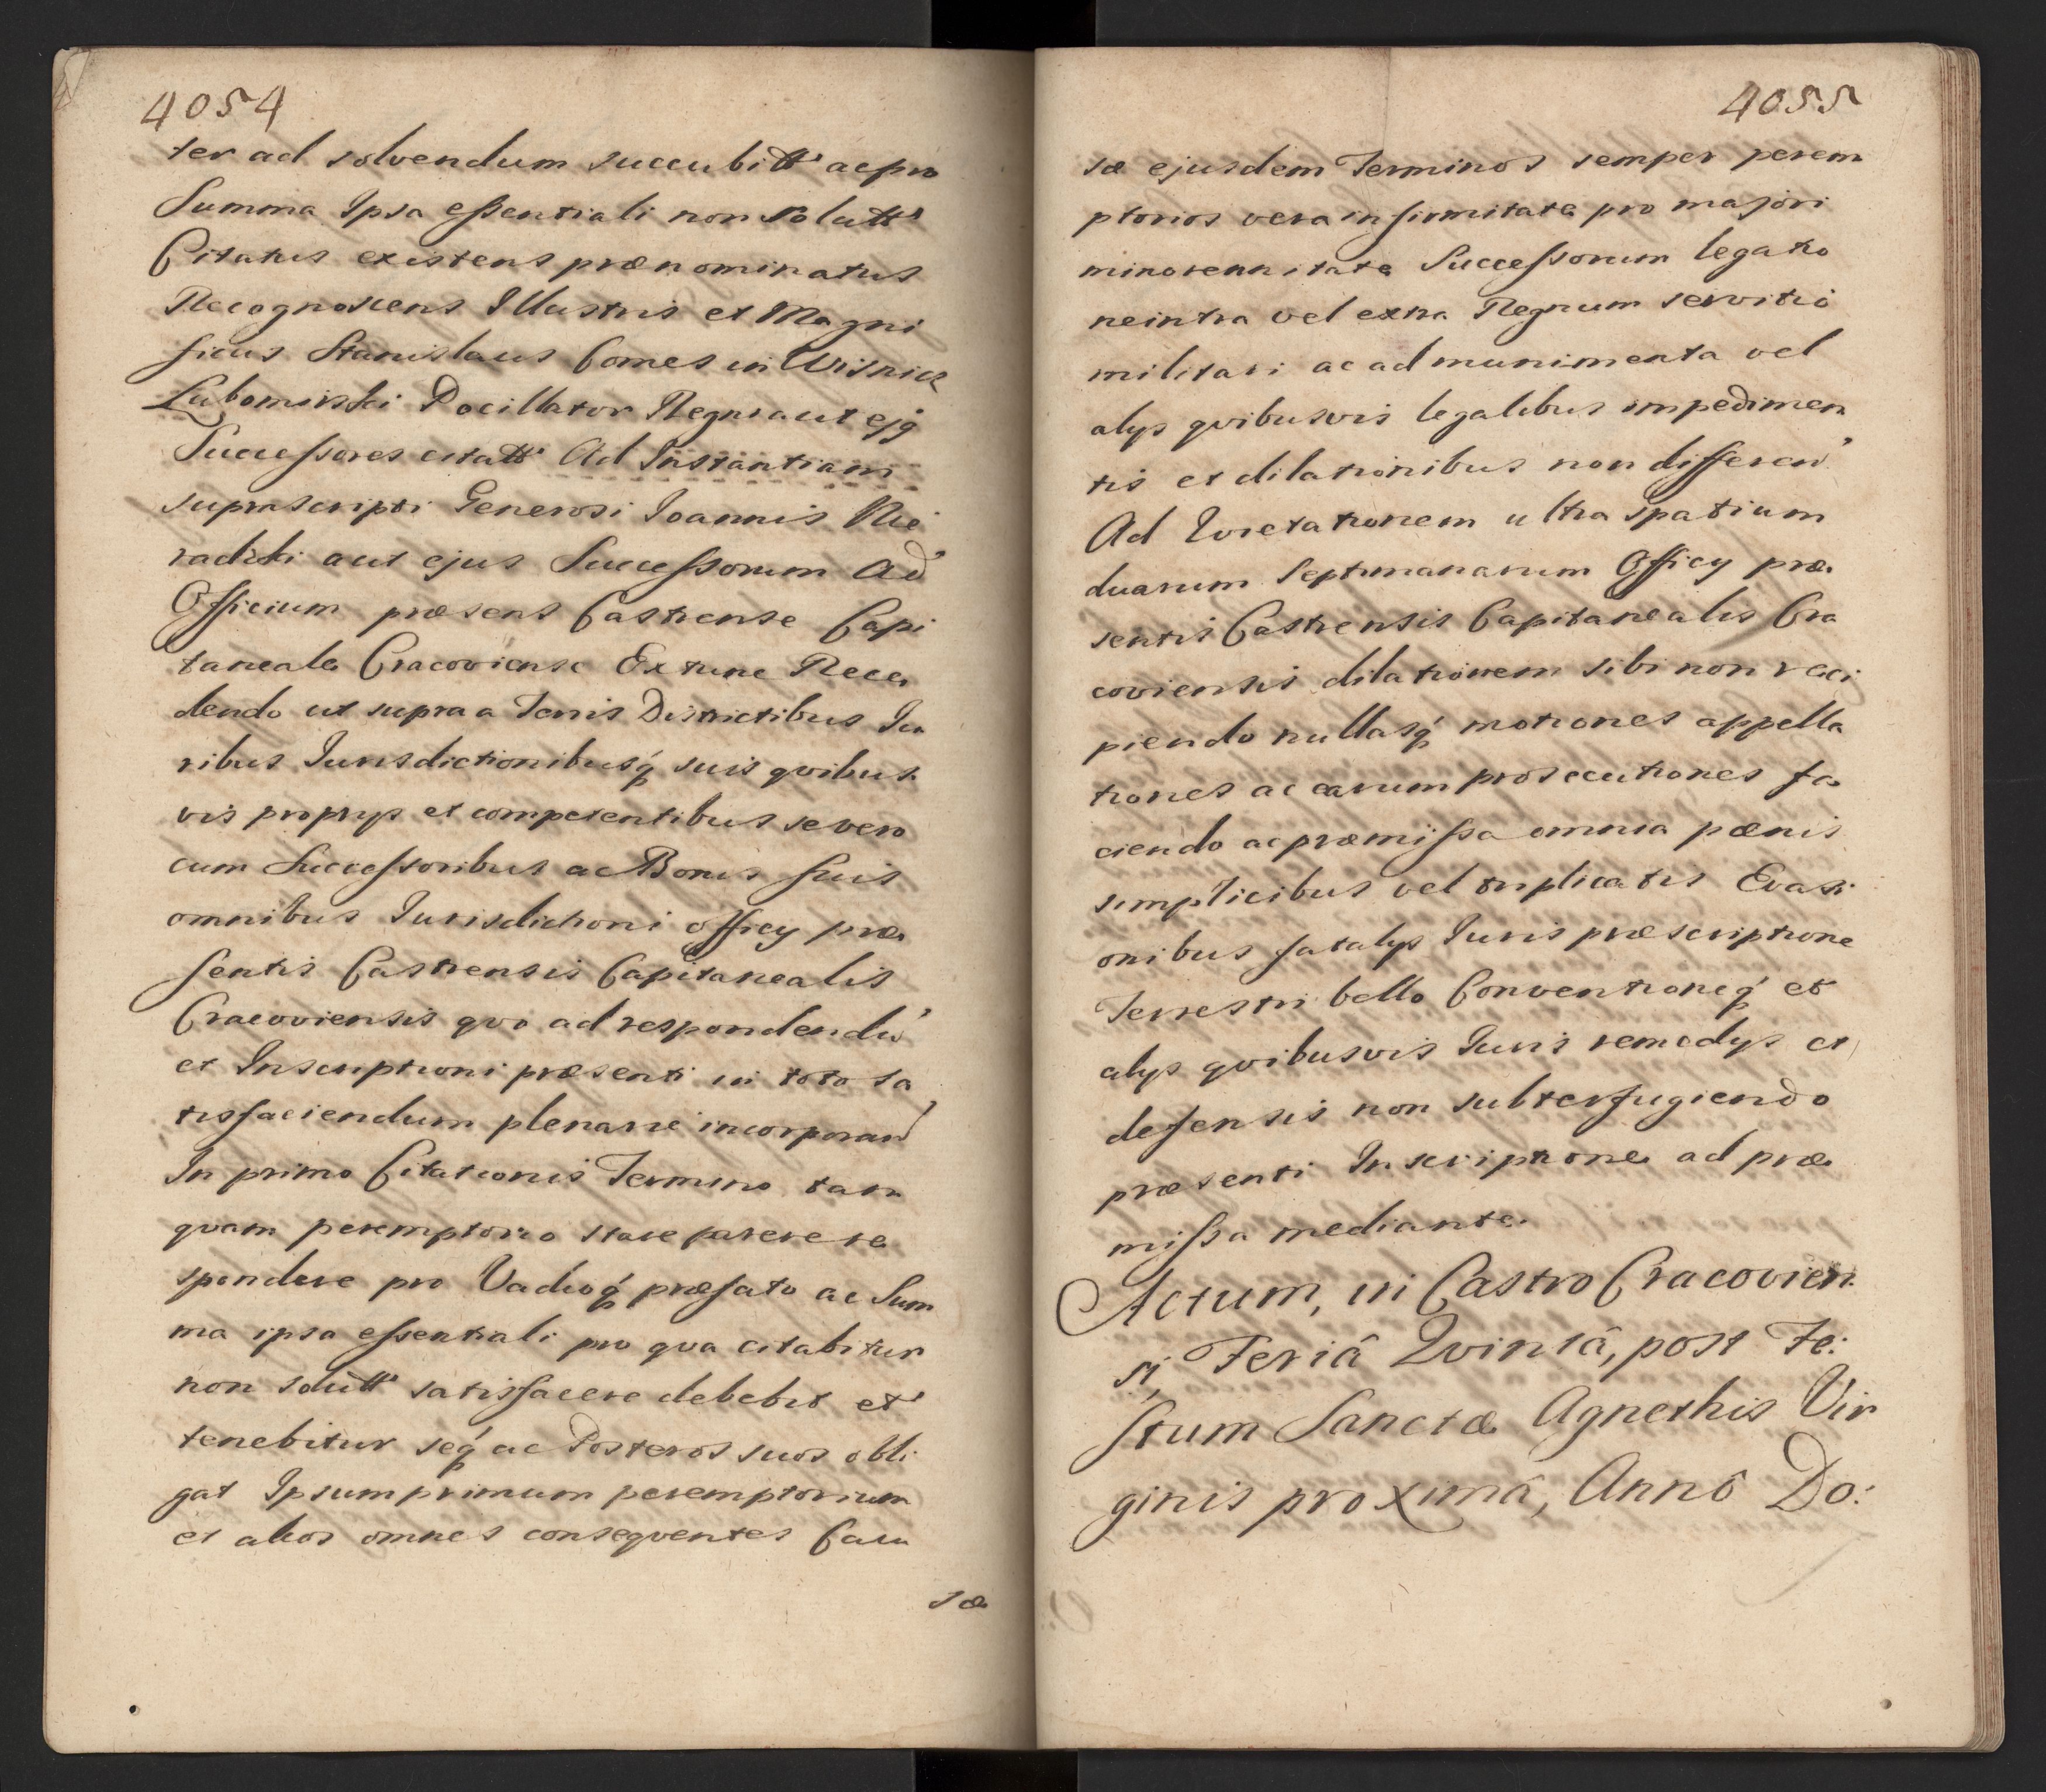 4054
ter ad solvendum succubitt' ac pro
Summa Ipsa essentiali non solutt'
Citatus existens prænominatus
Recognoscens Illustris et Magni
ficus Stanislaus Comes in Wisnicz
Lubomirski Pocillator Regni aut ejq
Successores citatt' Ad Instantiam
suprascripti Generosi Joannis Nie
radzki aut ejus Successorum Ad
Officium præsens Castrense Capi
taneale Cracoviense Ex tunc Rece
dendo ut supra a Terris Districtibus Ju
ribus Jurisdictionibusq́ suis qvibus
vis proprijs et competentibus se vero
cum Successoribus ac Bonis suis
omnibus Jurisdictioni officij præ
sentis Castrensis Capitanealis
Cracoviensis qvo ad respondendu'
et Inscriptioni præsenti in toto sa
tisfaciendum plenarie incorporan'
In primo Citationis Termino tan
qvam peremptorio stare parere re
spondere pro Vadioq́ præfato ac Sum
ma ipsa essentiali pro qva citabitur
non solutt' satisfacere debebit et
tenebitur seq́ ac Posteros suos obli
gat Ipsum primum peremptorium
et alios omnes conseqventes Cau
sæ
4055
sæ ejusdem Terminos semper perem
ptorios vera infirmitate pro majori
minorennitate Successorum legatio
ne intra vel extra Regnum servitio
militari ac ad munimenta vel
alijs qvibusvis legalibus impedimen
tis et dilationibus non differen'
Ad Qvietationem ultra spatium
duarum Septimanarum Officij præ
sentis Castrensis Capitanealis Cra
coviensis dilationem sibi non reci
piendo nullasq́ motiones appella
tiones ac earum prosecutiones fa
ciendo ac præmissa omnia pœnis
simplicibus vel triplicatis Evasi
onibus fatalijs Juris præscriptione
Terrestri bello Conventioneq́ et
alijs qvibusvis Juris remedijs et
defensis non subterfugiendo
præsenti Inscriptione ad præ
missa mediante.
Actum, in Castro Cracovien
si, Feriâ Qvintâ, post Fe:
stum Sanctæ Agnethis Vir
ginis proximâ, Annô Do: